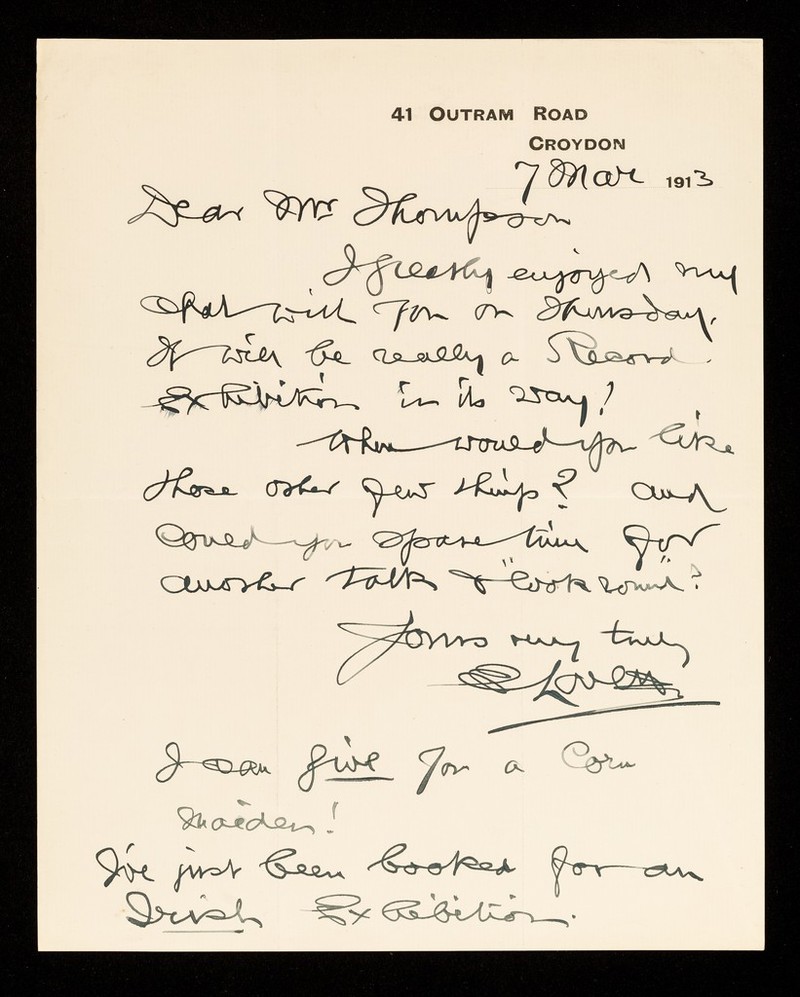 41 OUTRAM ROAD
CROYDON
7 Mar 1913
Dear Mr Thompson
I greatly enjoyed my
chat with you on Thursday.
It will be really a Record
Exhibition in its way!
When would you like
those other few things? and
could you spare time for
another talk & "look round"?
Yours very truly
E Lovett
I can give you a Corn
Maiden!
I've just been booked for an
Irish Exhibition.